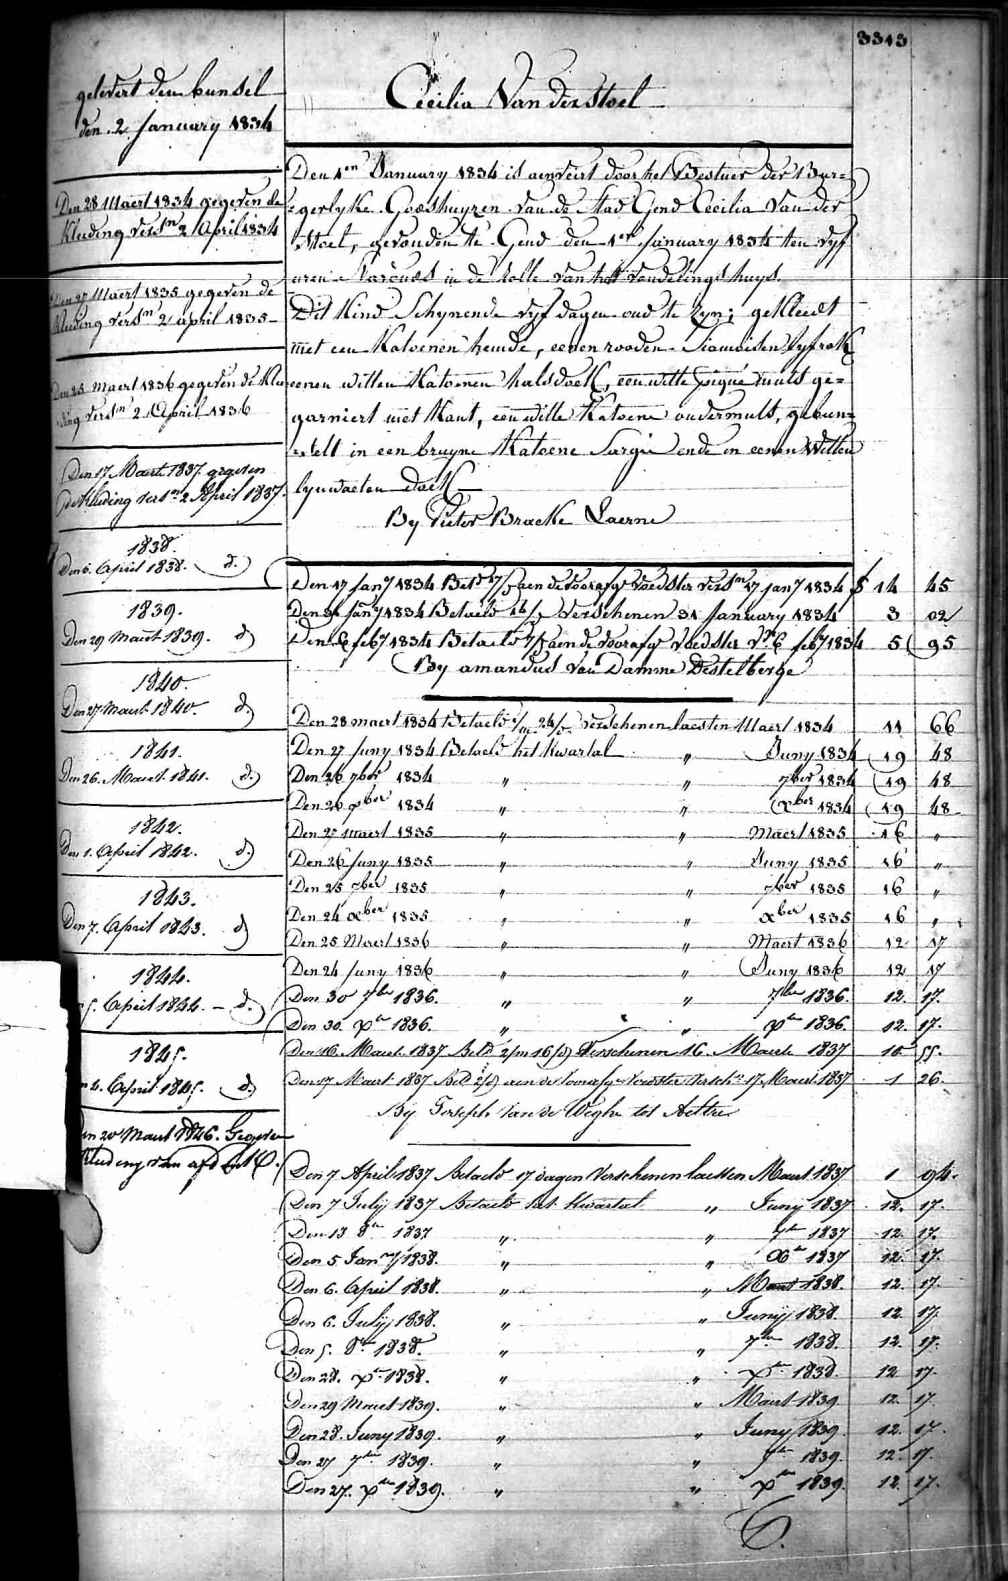 3313
gelevert den bunsel
den 2 January 1834
Den 28 Maert 1834 gegeven de
Kleding versn 2 April 1834
Den 27 Maert 1835 gegeven de
Kleding versn 2 april 1835
Den 25 maert 1836 gegeven de Kle
ding versn 2 April 1836
Den 17 Maert 1837 gegeven
de Kleeding versn 2 April 1837.
1838.
Den 6. April 1838. d.
1839.
Den 29 Maert 1839. d.
1840.
Den 27 Maert 1840. d.
1841.
Den 26. Maert 1841. d.
1842.
Den 1. April 1842. d.
1843.
Den 7. April 1843. d
1844.
5. April 1844. - d.
1845.
4. April 1845. d.
en 20 Maert 1846. Gegeven
Kleeding van
Cecilia Van der Stoel
Den 1en January 1834 is aenveirt door het Bestuer der Bur-
gerlyke Godshuyzen van de Stad Gend Cecilia Van der
Stoel, gevonden te Gend den 1en January 1834 ten vyf
uren S'avonds in de rolle van het vondelingshuys.
Dit Kind Schynende vyf dagen oud te zyn; gekleedt
met een Katoenen hemde, eenen rooden Siamoisen lyfrok
eenen witten Katoenen halsdoek, een witte piqué muts ge-
garniert met Kant, een witte Katoene ondermuts, gebun-
selt in een bruyne Katoene Sargie ende in eenen Witten
lynwaeten doek
By Pieter Bracke Laerne
Den 17 Jany 1834 Bet aen de voorafge voedster versn 17 jany 1834 f 14 45
Den 31 Jany 1834 Betaeld Verschenen 31 January 1834 3 02
Den 6 feby 1834 Betaeld aen de voorafge Voedster Vn 6 feby 1834 5 95
By amandus Van Damme Destelberge
Den 28 maert 1834 Betaeld verschenen laesten Maert 1834 11 66
Den 27 Juny 1834 Betaeld het Kwartal " Juny 1834 19 48
Den 26 7ber 1834 " " 7ber 1834 19 48
Den 26 xber 1834 " " xber 1834 19 48
Den 27 maert 1835 " " Maert 1835 16 "
Den 26 Juny 1835 " " Juny 1835 16 "
Den 25 7ber 1835 " " 7ber 1835 16 "
Den 24 xber 1835 " " xber 1835 16 "
Den 25 Maert 1836 " " Maert 1836 12 17
Den 24 Juny 1836 " " Juny 1836 12 17
Den 30 7ber 1836. " " 7ber 1836. 12. 17.
Den 30. xber 1836. " " xber 1836. 12. 17.
Den 16. Maert 1837 Betd 2/m 16/d Verschenen 16. Maert 1837 10 55.
Den 17 Maert 1837 Betd aen de voorafge Voedster Versche 17. Maert 1837 1 26.
Bij Joseph Van de Weghe tot Aeltre
Den 7 April 1837 Betaeld 17 dagen Verschenen laetsten Maert 1837 1 94.
Den 7 Julij 1837 Betaeld het Kwartal " Juny 1837 12. 17.
Den 13 8er 1837 " " 7er 1837 12. 17.
Den 5 Janry 1838. " " Xer 1837 12. 17.
Den 6. April 1838. " " Maert 1838. 12. 17.
Den 6. Julij 1838. " " Junij 1838. 12. 17.
Den 5. 8er 1838. " " 7er 1838. 12. 17.
Den 28. xer 1838. " " xer 1838. 12 17.
Den 29 Maert 1839. " " Maert 1839 12. 17
Den 28. Juny 1839. " " Juny 1839. 12. 17.
Den 27 7er 1839. " " 7er 1839. 12. 17.
Den 27. xer 1839. " " xer 1839. 12. 17.